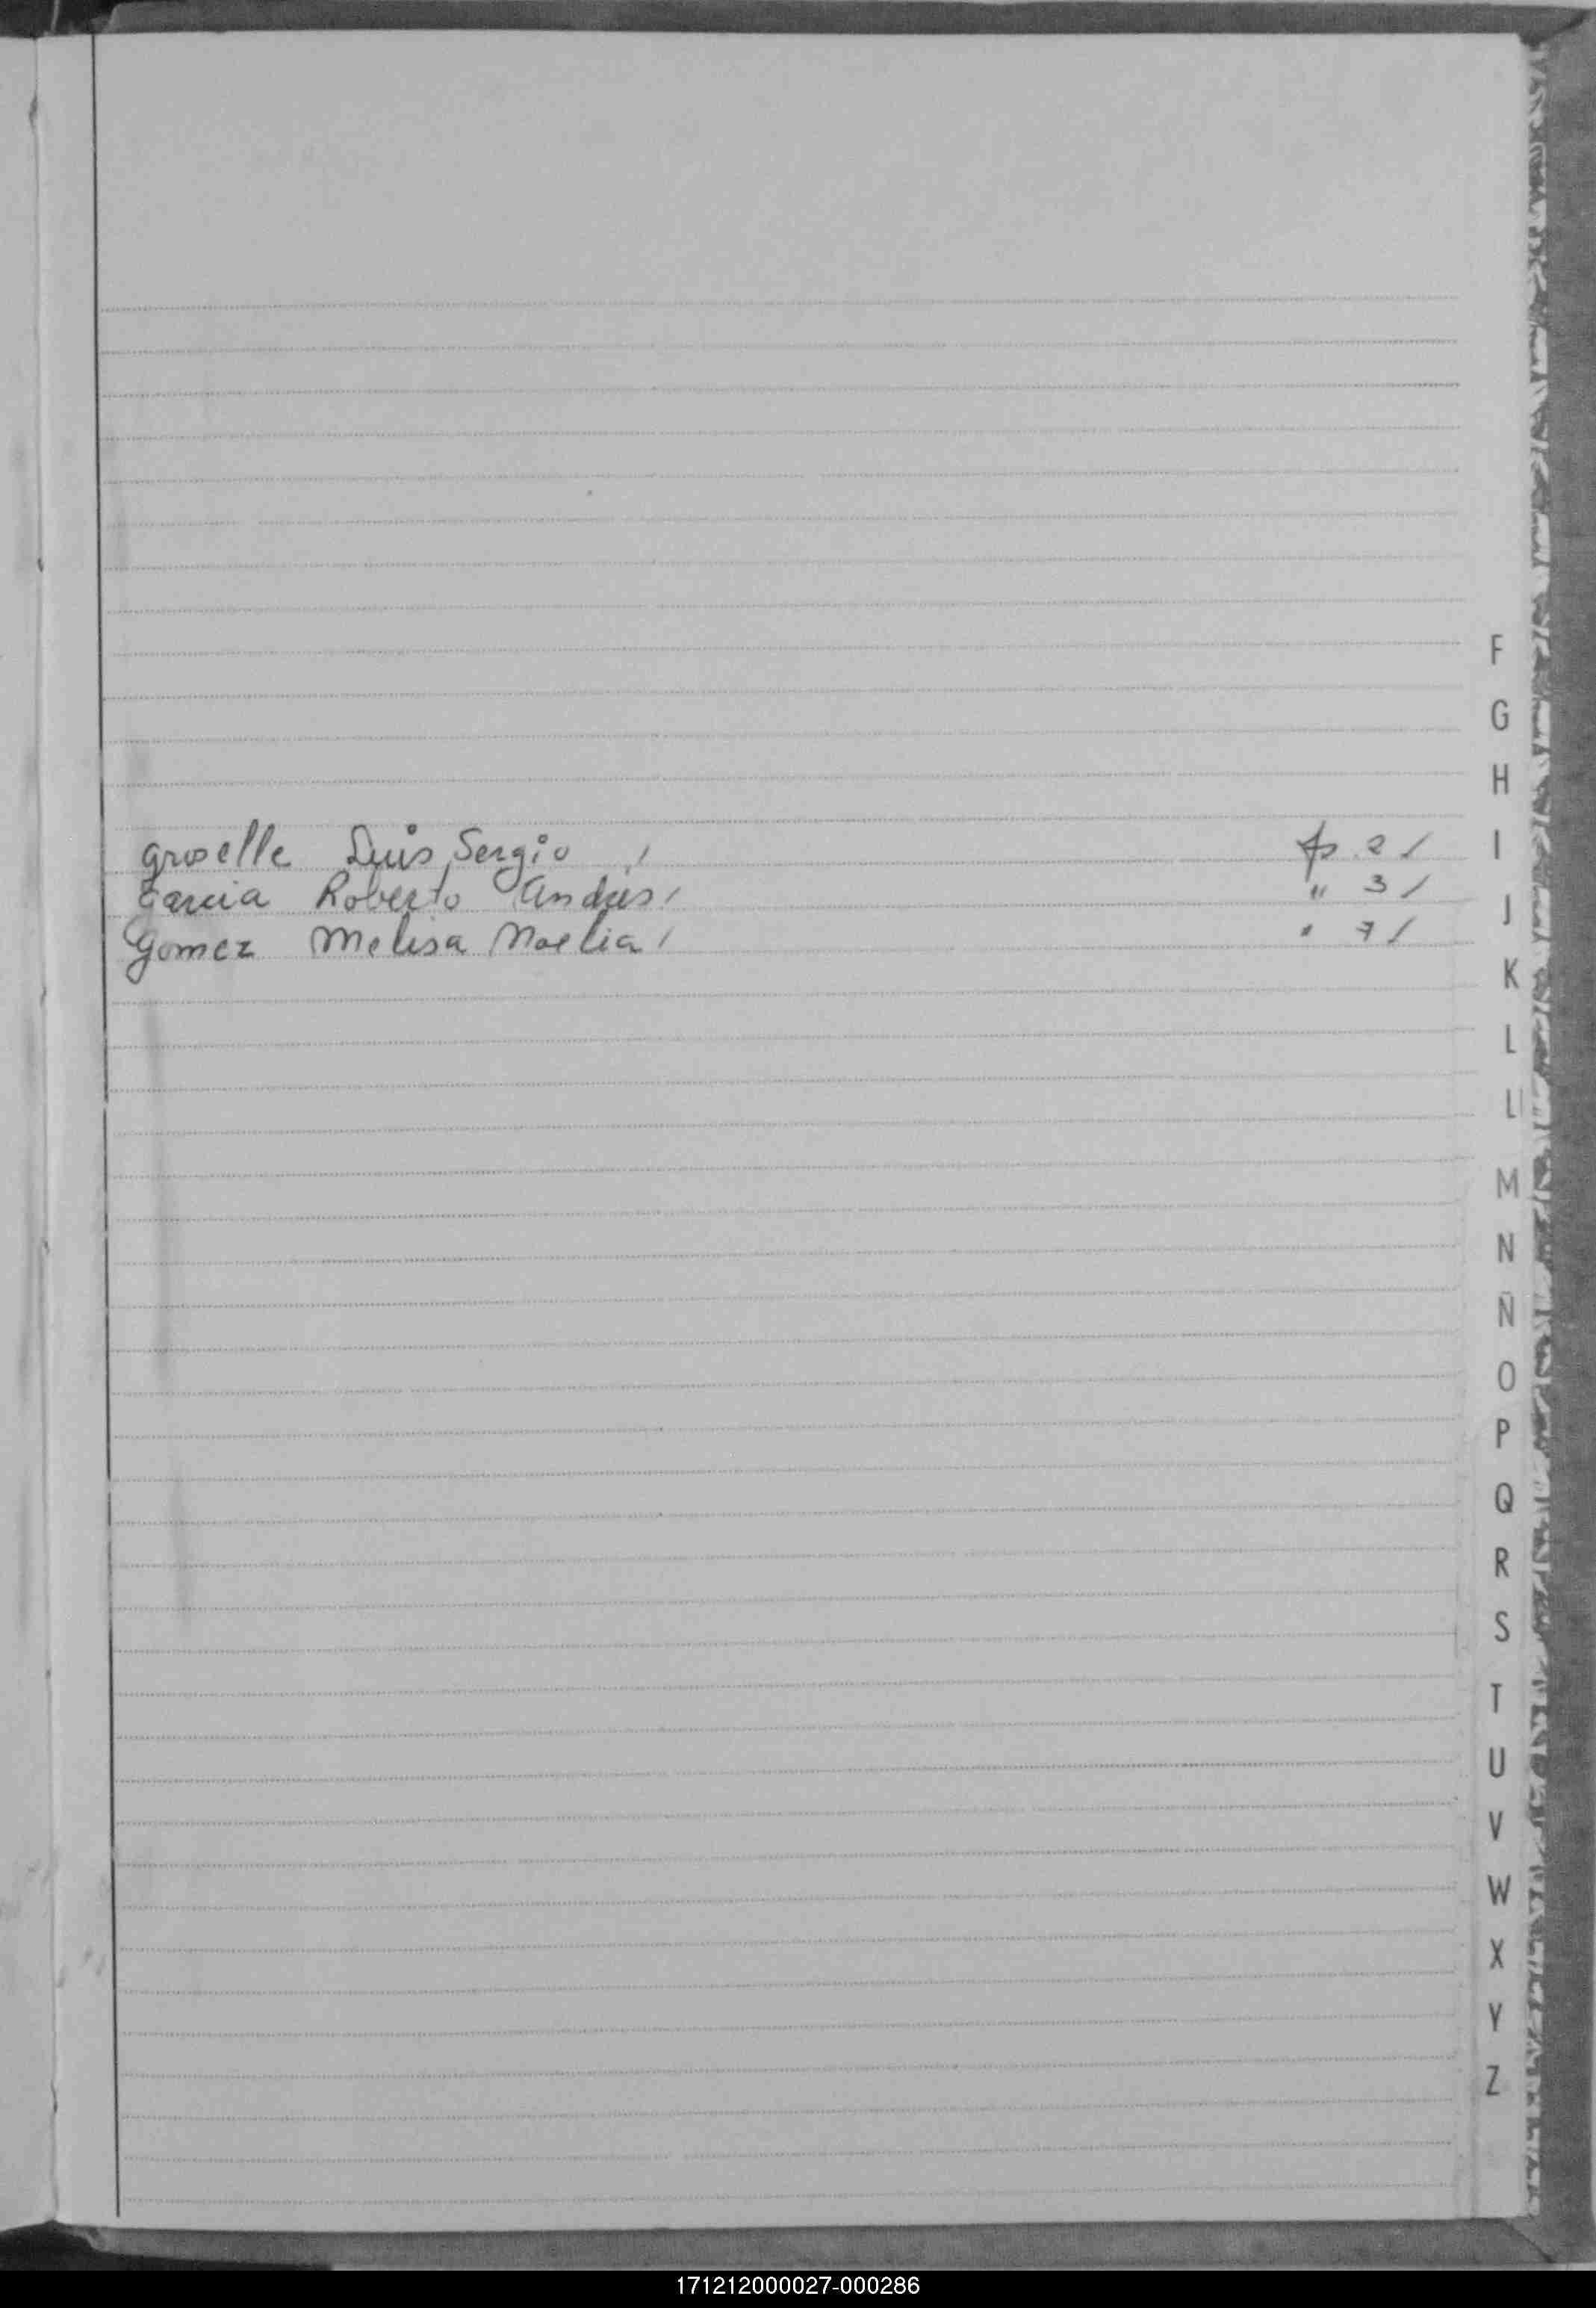 F
G
H
Groselle Luis Sergio / fo 2 /
I
Garcia Roberto Andrés / " 3 /
J
Gomez Melisa Noelia / " 7 /
K
L
Ll
M
N
Ñ
O
P
Q
R
S
T
U
V
W
X
Y
Z
171212000027-000286